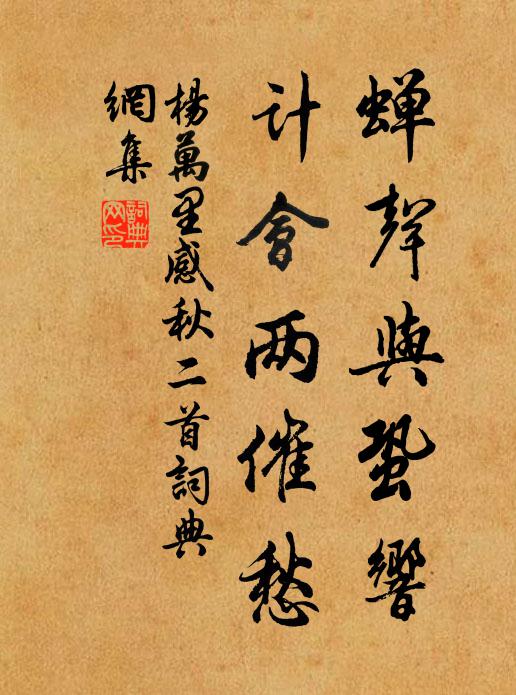 蝉聲與蛩響
計會两催愁
楊萬里感秋二首詞典
網集
詞典
网印